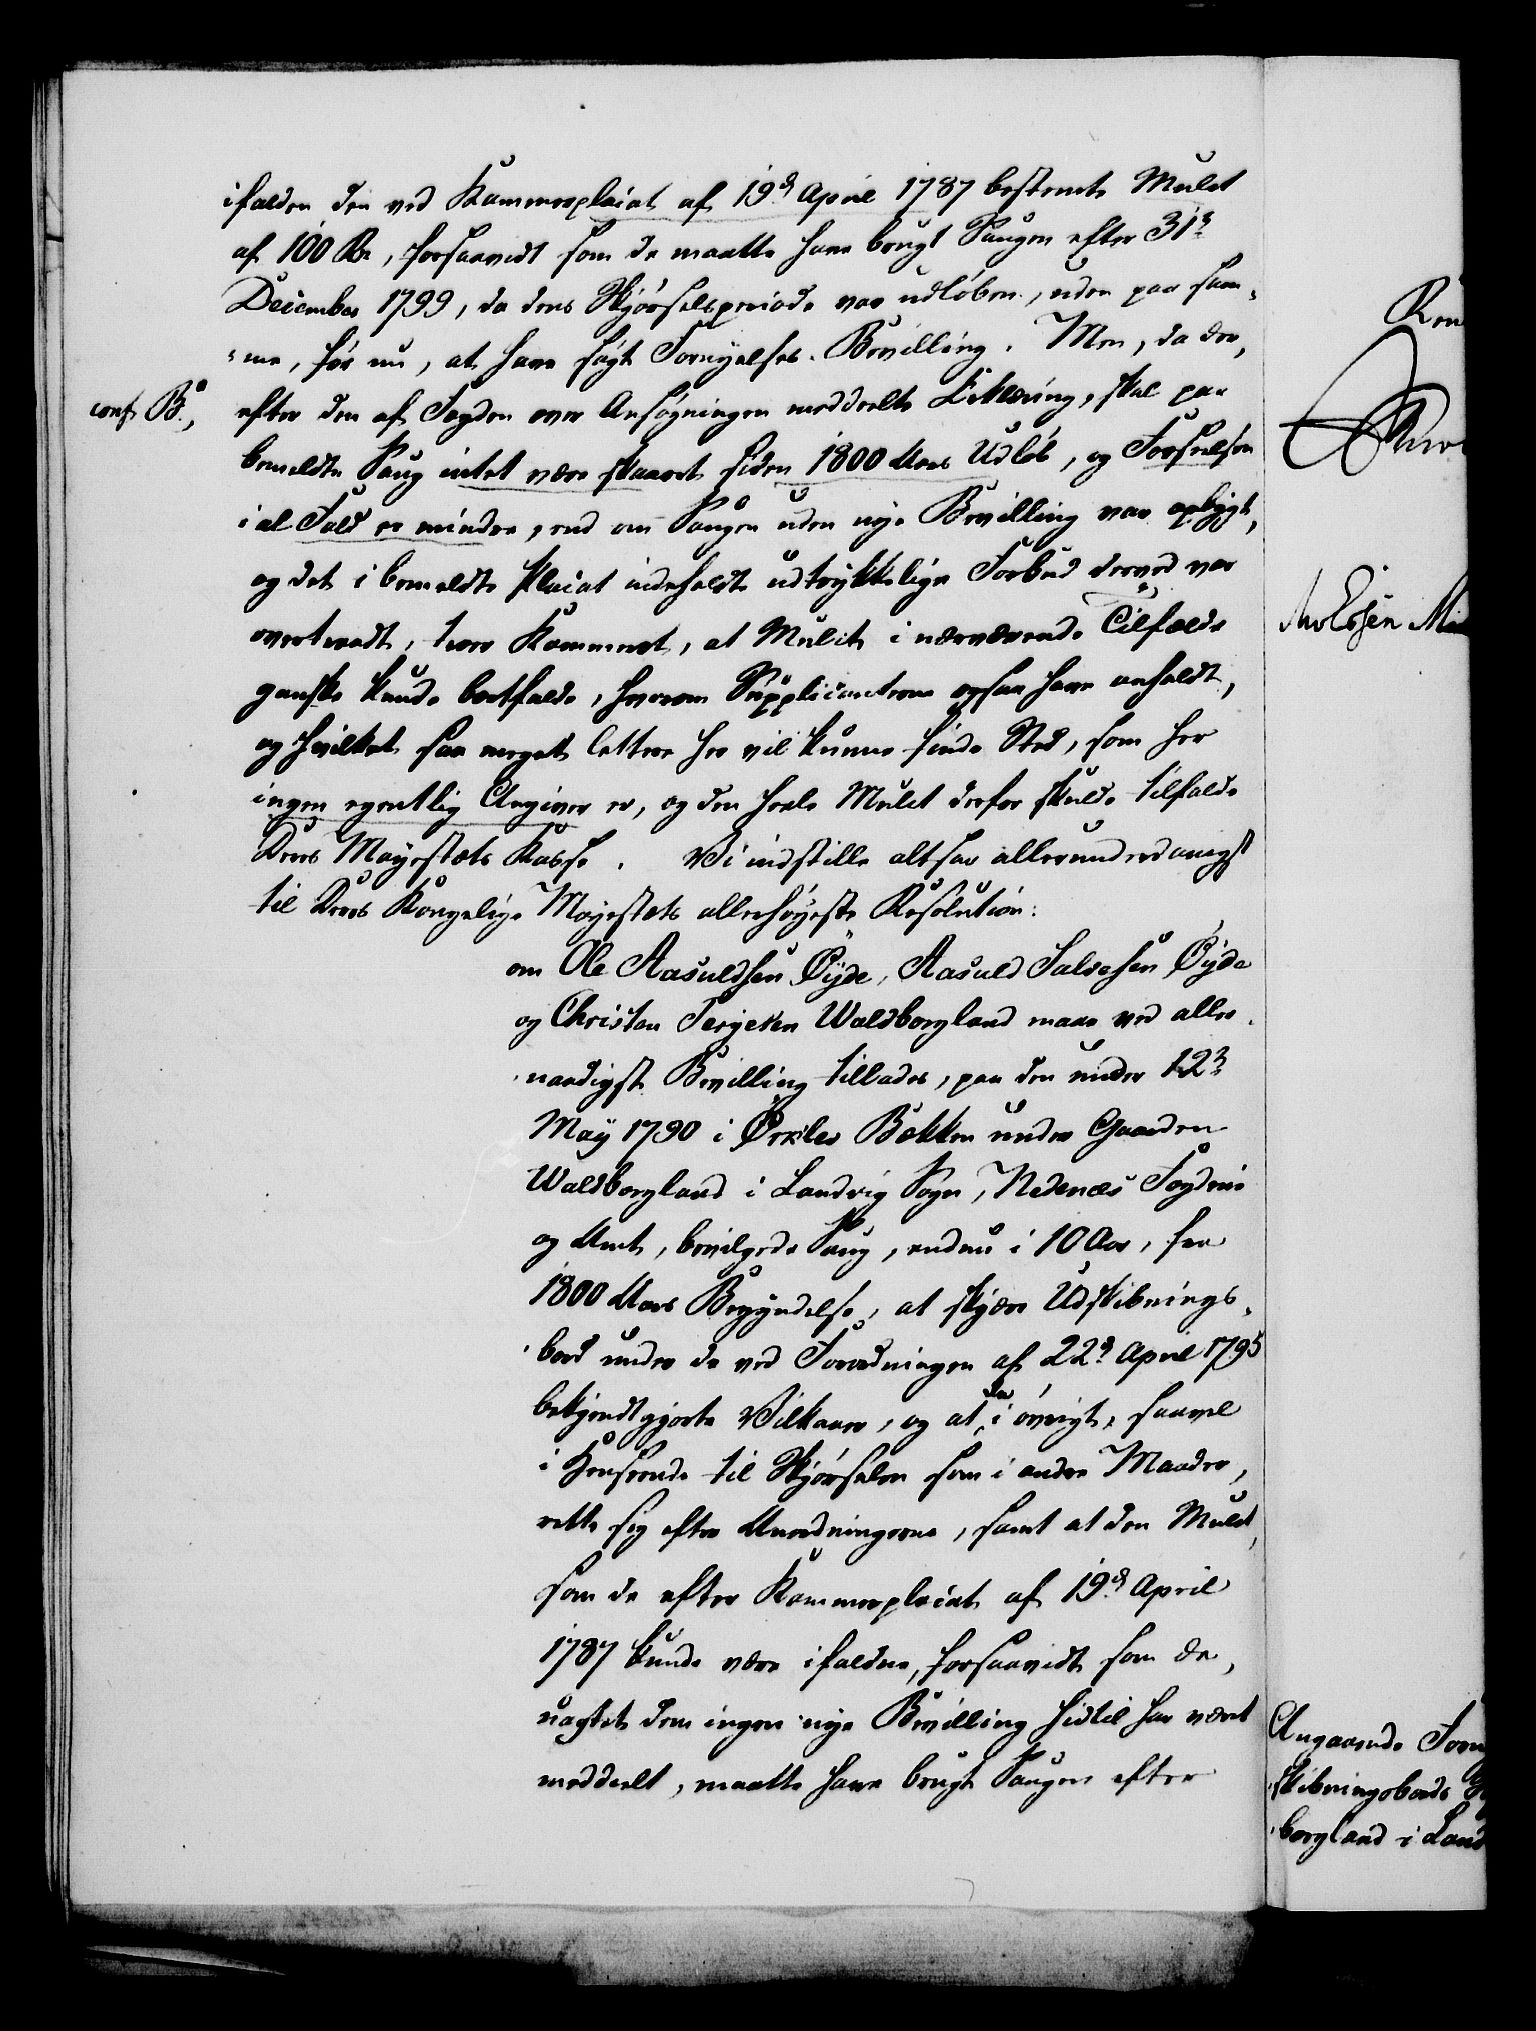 ifalden den ved Kammerplacat af 19de April 1787 bestemte Mulct
af 100 Rdr, forsaavidt som de maatte have brugt Saugen efter 31te
December 1799, da dens Skjørselsperiode var udløben, uden paa sam-
-me, før nu, at have søgt Fornyelses-Bevilling. Men, da der,
conf. B., efter den af Fogden over Ansøgningen meddeelte Erklæring, skal paa
bemeldte Saug intet være skaaret siden 1800 Aars Udløb, og Forseelsen
i al Fald er mindre, end om Saugen uden nye Bevilling var opbygt,
og det i bemeldte Placat indeholdte udtrykkelige Forbud derved var
overtraadt, troer Kammeret, at Mulcten i nærværende Tilfælde
ganske kunde bortfalde, hvorom Supplicanterne ogsaa have anholdt,
og hvilket saa meget lettere her vil kunne finde Sted, som her
ingen egentlig Angiver er, og den heele Mulct derfor skulde tilfalde
Deres Mayestæts Kasse. Vi indstille altsaa allerunderdanigst
til Deres Kongelige Mayestæts allerhøyeste Resolution:
om Ole Aasuldsen Øyde, Aasuld Salvesen Øyde
og Christen Terjesen Waldborgland maae ved aller-
-naadigst Bevilling tillades, paa den under 12te
May 1790 i Ørkles Bækken under Gaarden
Waldborgland i Landvig Sogn, Nedenæs Fogderie
og Amt, bevilgede Saug, endnu i 10 Aar, fra
1800 Aars Begyndelse, at skjære Udskibnings-
-bord under de ved Forordningen af 22de April 1795
bekjendtgjorte Vilkaar, og at de i øvrigt, saavel
i Henseende til Skjørselen som i andre Maader,
rette sig efter Anordningerne, samt at den Mulct,
som de efter Kammerplacat af 19de April
1787 kunde være ifaldne, forsaavidt som de,
uagtet dem ingen nye Bevilling hidtil har været
meddeelt, maatte have brugt Saugen efter
Ren
Angaaende Forn
skibningsbords
-borgland i Land